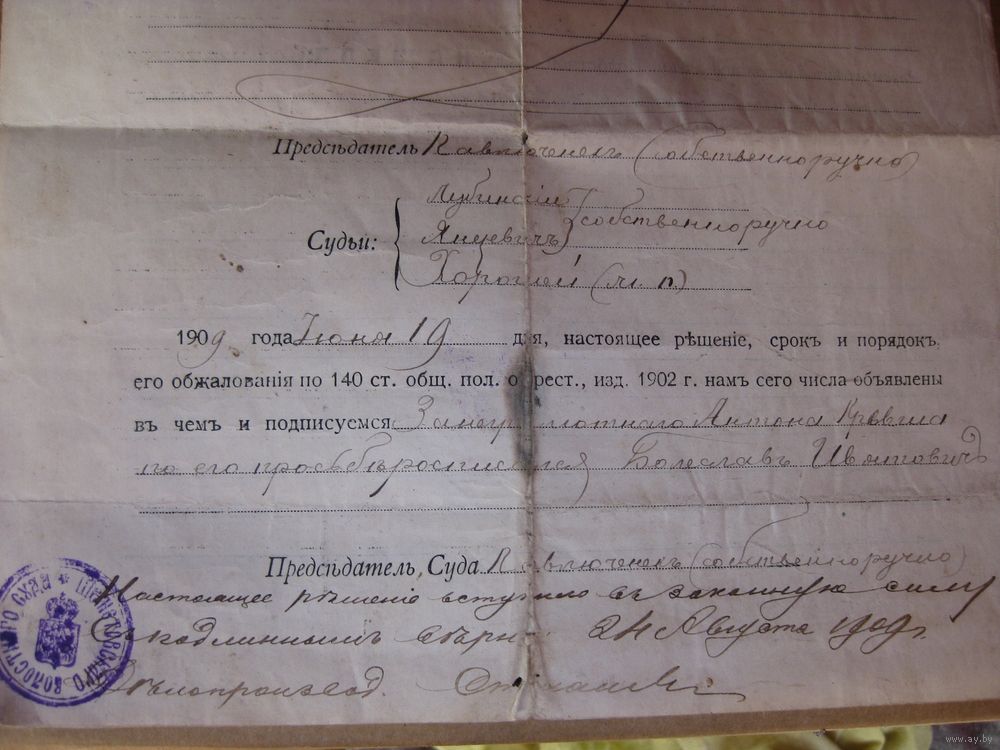 Предсѣдатель Павлюченокъ (собственноручно)
Судьи:
Лубинскій
собственноручно
Янцевичъ
Хорошей (м. п.)
1909 года Іюня 19 дня, настоящее рѣшеніе, срокъ и порядокъ
его обжалованія по 140 ст. общ. пол. о крест., изд. 1902 г. намъ сего числа объявлены
въ чемъ и подписуемся За неграмотнаго Антона
по его просьбѣ росписался Болеславъ
Предсѣдатель Суда Павлюченокъ (собственноручно)
Настоящее рѣшеніе вступило въ законную силу
Съ подлиннымъ вѣрно 24 Августа 1909 г.
Дѣлопроизвод.
ВОЛОСТНОГО СУДА
www.ay.by